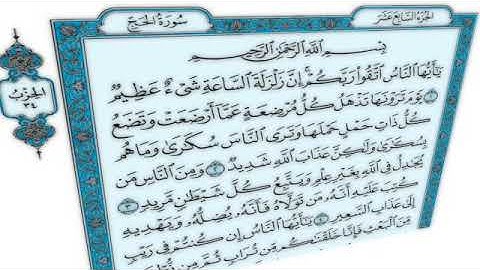 الجُزْءُ السَّابِعَ عَشَرَ
سُورَةُ الحَجِّ
الحِزْبُ ٣٤
بِسْمِ ٱللَّهِ ٱلرَّحْمَٰنِ ٱلرَّحِيمِ
يَٰٓأَيُّهَا ٱلنَّاسُ ٱتَّقُوا۟ رَبَّكُمْ إِنَّ زَلْزَلَةَ ٱلسَّاعَةِ شَىْءٌ عَظِيمٌ
١ يَوْمَ تَرَوْنَهَا تَذْهَلُ كُلُّ مُرْضِعَةٍ عَمَّآ أَرْضَعَتْ وَتَضَعُ
كُلُّ ذَاتِ حَمْلٍ حَمْلَهَا وَتَرَى ٱلنَّاسَ سُكَٰرَىٰ وَمَا هُم
بِسُكَٰرَىٰ وَلَٰكِنَّ عَذَابَ ٱللَّهِ شَدِيدٌ ٢ وَمِنَ ٱلنَّاسِ مَن
يُجَٰدِلُ فِى ٱللَّهِ بِغَيْرِ عِلْمٍ وَيَتَّبِعُ كُلَّ شَيْطَٰنٍ مَّرِيدٍ ٣
كُتِبَ عَلَيْهِ أَنَّهُۥ مَن تَوَلَّاهُ فَأَنَّهُۥ يُضِلُّهُۥ وَيَهْدِيهِ
إِلَىٰ عَذَابِ ٱلسَّعِيرِ ٤ يَٰٓأَيُّهَا ٱلنَّاسُ إِن كُنتُمْ فِى رَيْبٍ
مِّنَ ٱلْبَعْثِ فَإِنَّا خَلَقْنَٰكُم مِّن تُرَابٍ ثُمَّ مِن